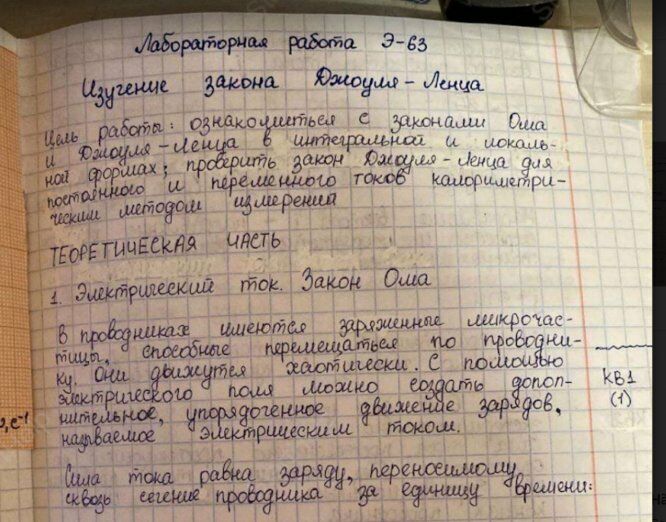 Лабораторная работа Э-63
Изучение закона Джоуля-Ленца
Цель работы: ознакомиться с законами Ома
и Джоуля-Ленца в интегральной и локаль-
ной формах; проверить закон Джоуля-Ленца для
постоянного и переменного токов калориметри-
ческим методом измерений
ТЕОРЕТИЧЕСКАЯ ЧАСТЬ
1. Электрический ток. Закон Ома
В проводниках имеются заряженные микрочас-
тицы, способные перемещаться по проводни-
ку. Они движутся хаотически. С помощью
электрического поля можно создать допол-
нительное, упорядоченное движение зарядов,
называемое электрическим током.
КВ1
(1)
Сила тока равна заряду, переносимому
сквозь сечение проводника за единицу времени: